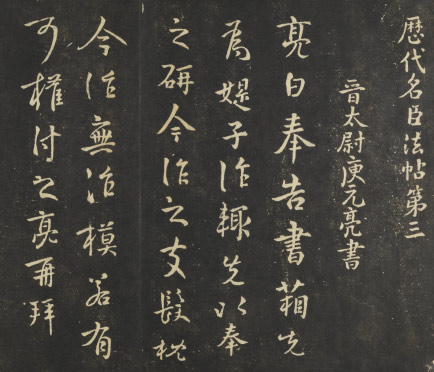 歷代名臣法帖第三
晉太尉庾元亮書
亮白奉告書箱先
為媞子作輒先以奉
之研今作之支髮枕
今作無治模若有
可權付之亮再拜